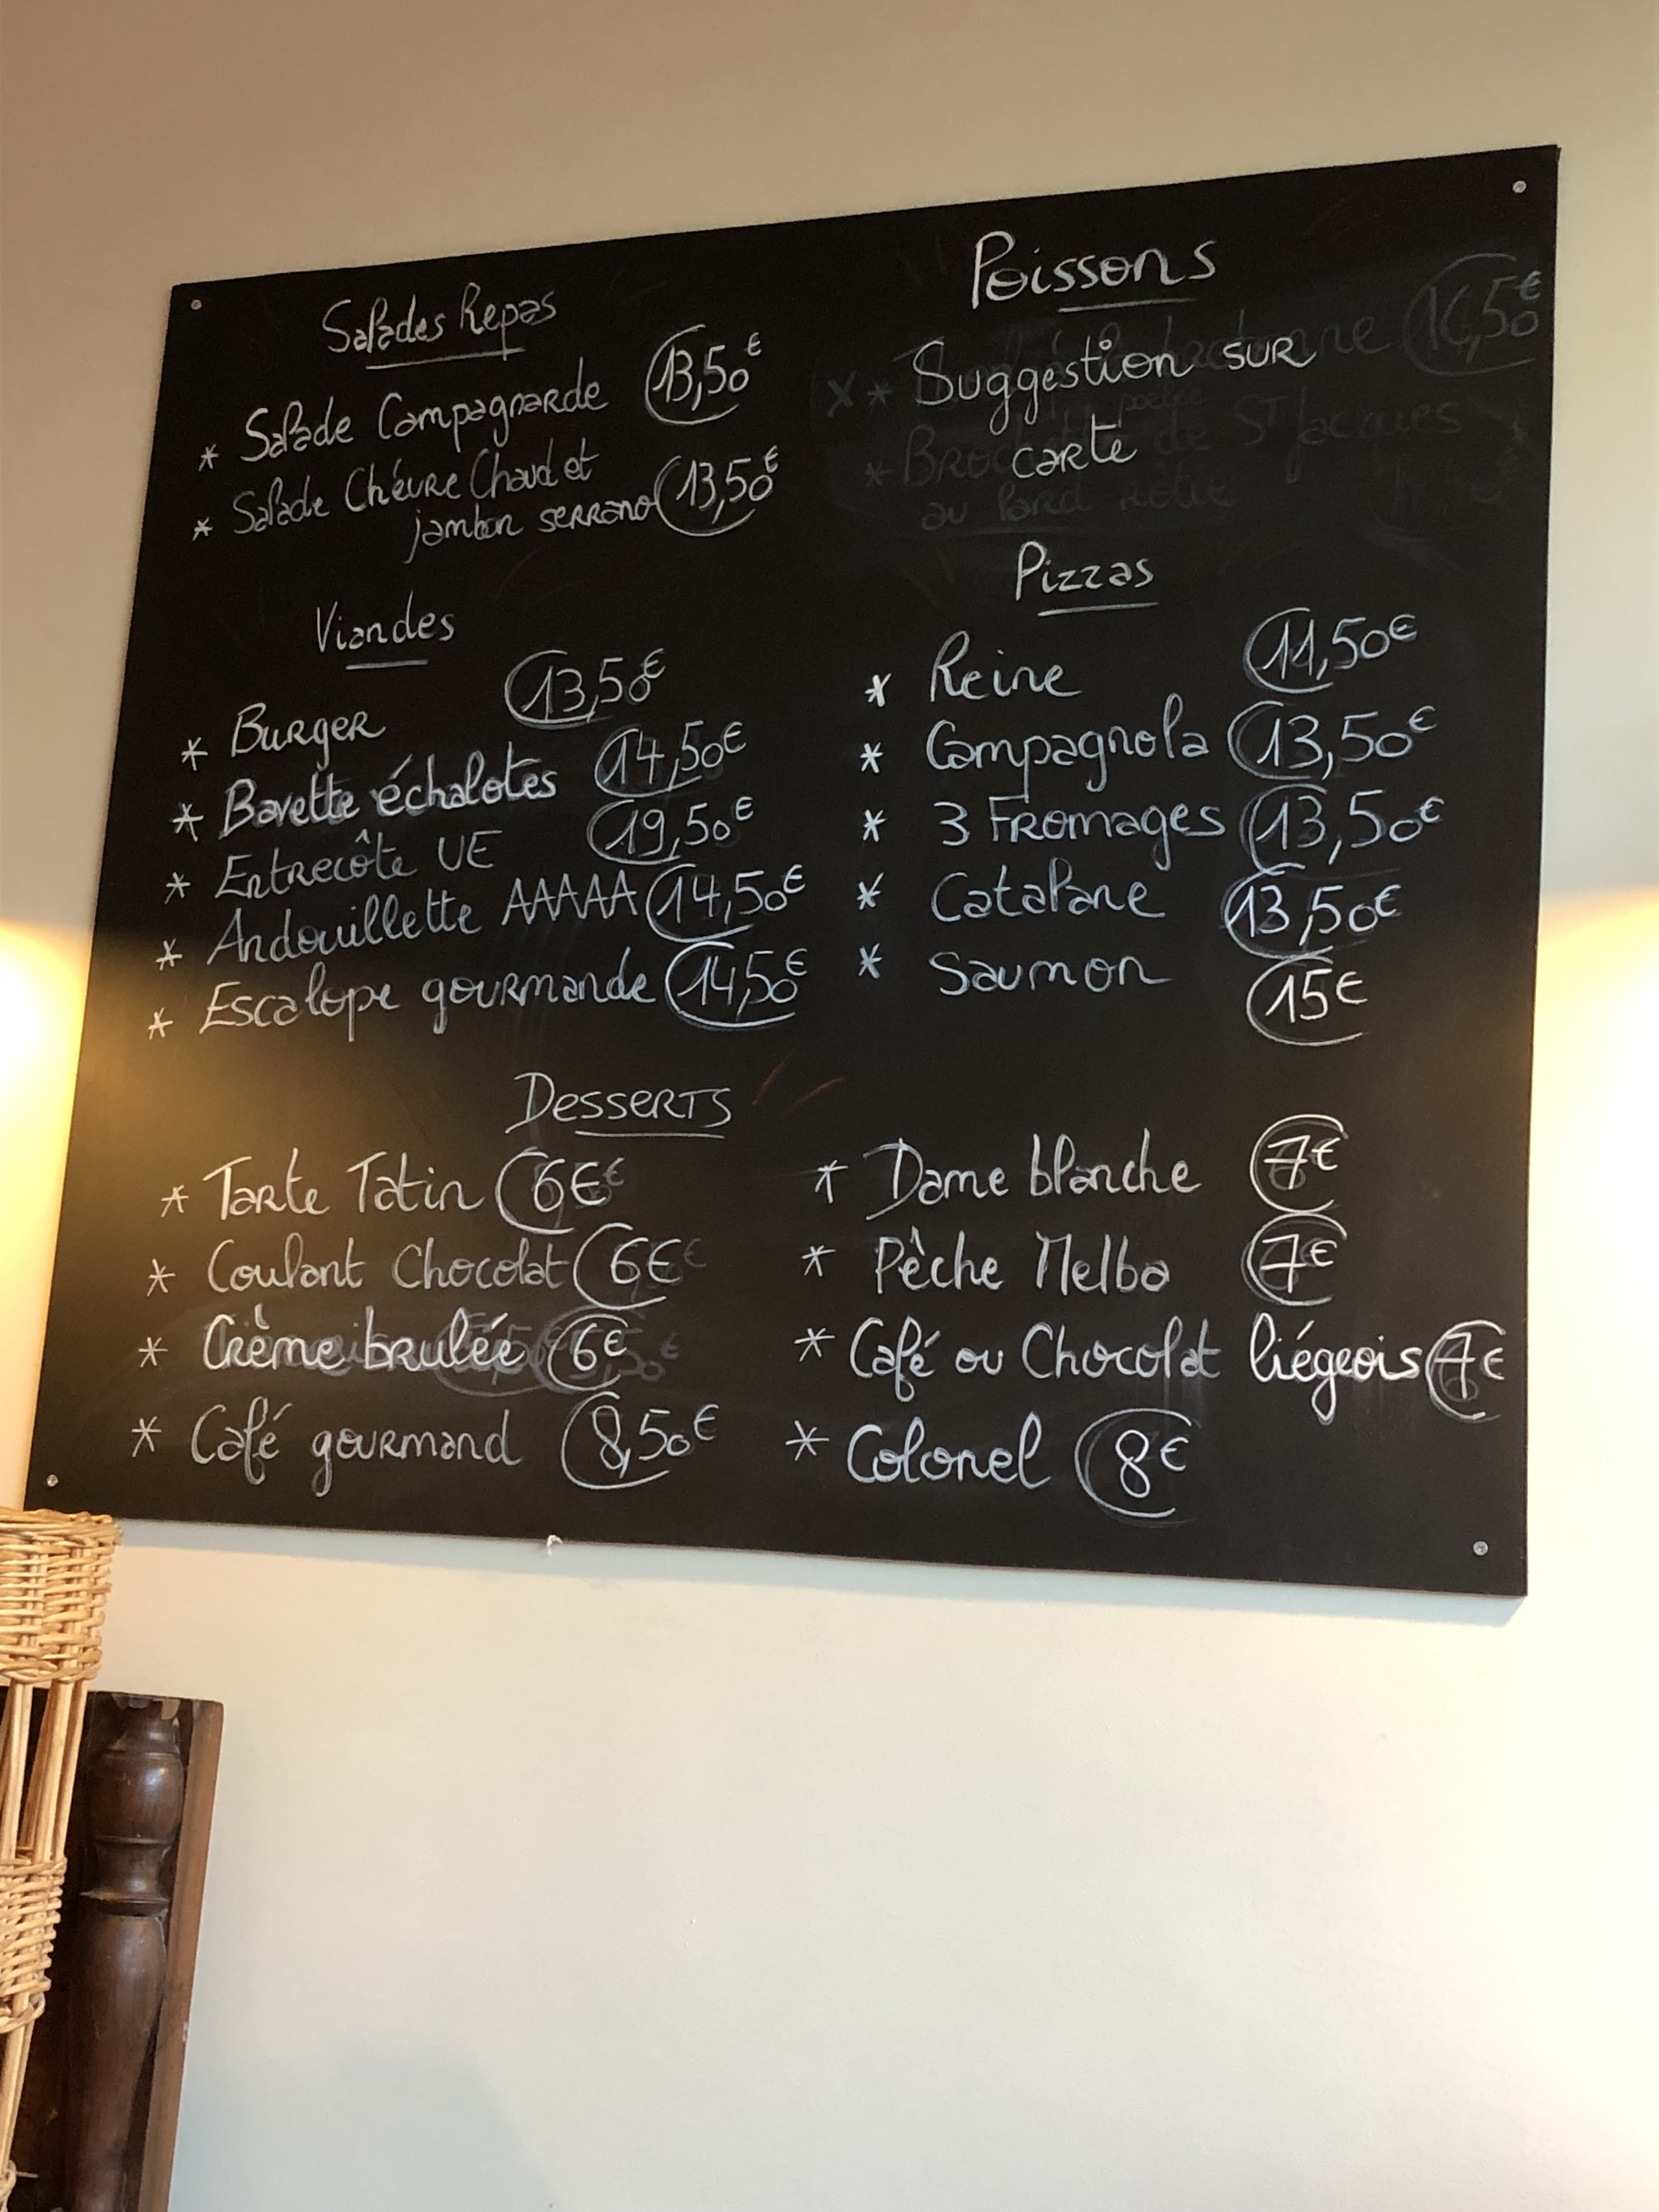 Salades Repas
* Salade Campagnarde 13,50€
* Salade Chèvre Chaud et
jambon serrano 13,50€
Viandes
* Burger 13,50€
* Bavette échalotes 14,50€
* Entrecôte UE 19,50€
* Andouillette AAAAA 14,50€
* Escalope gourmande 14,50€
Poissons
* Suggestion sur
carte
16,50€
de St Jacques
au lard
Pizzas
* Reine 11,50€
* Campagnola 13,50€
* 3 Fromages 13,50€
* Catalane 13,50€
* Saumon 15€
Desserts
* Tarte Tatin 6€
* Coulant Chocolat 6€
* Crème brulée 6€
* Café gourmand 8,50€
* Dame blanche 7€
* Pêche Melba 7€
* Café ou Chocolat liégeois 7€
* Colonel 8€